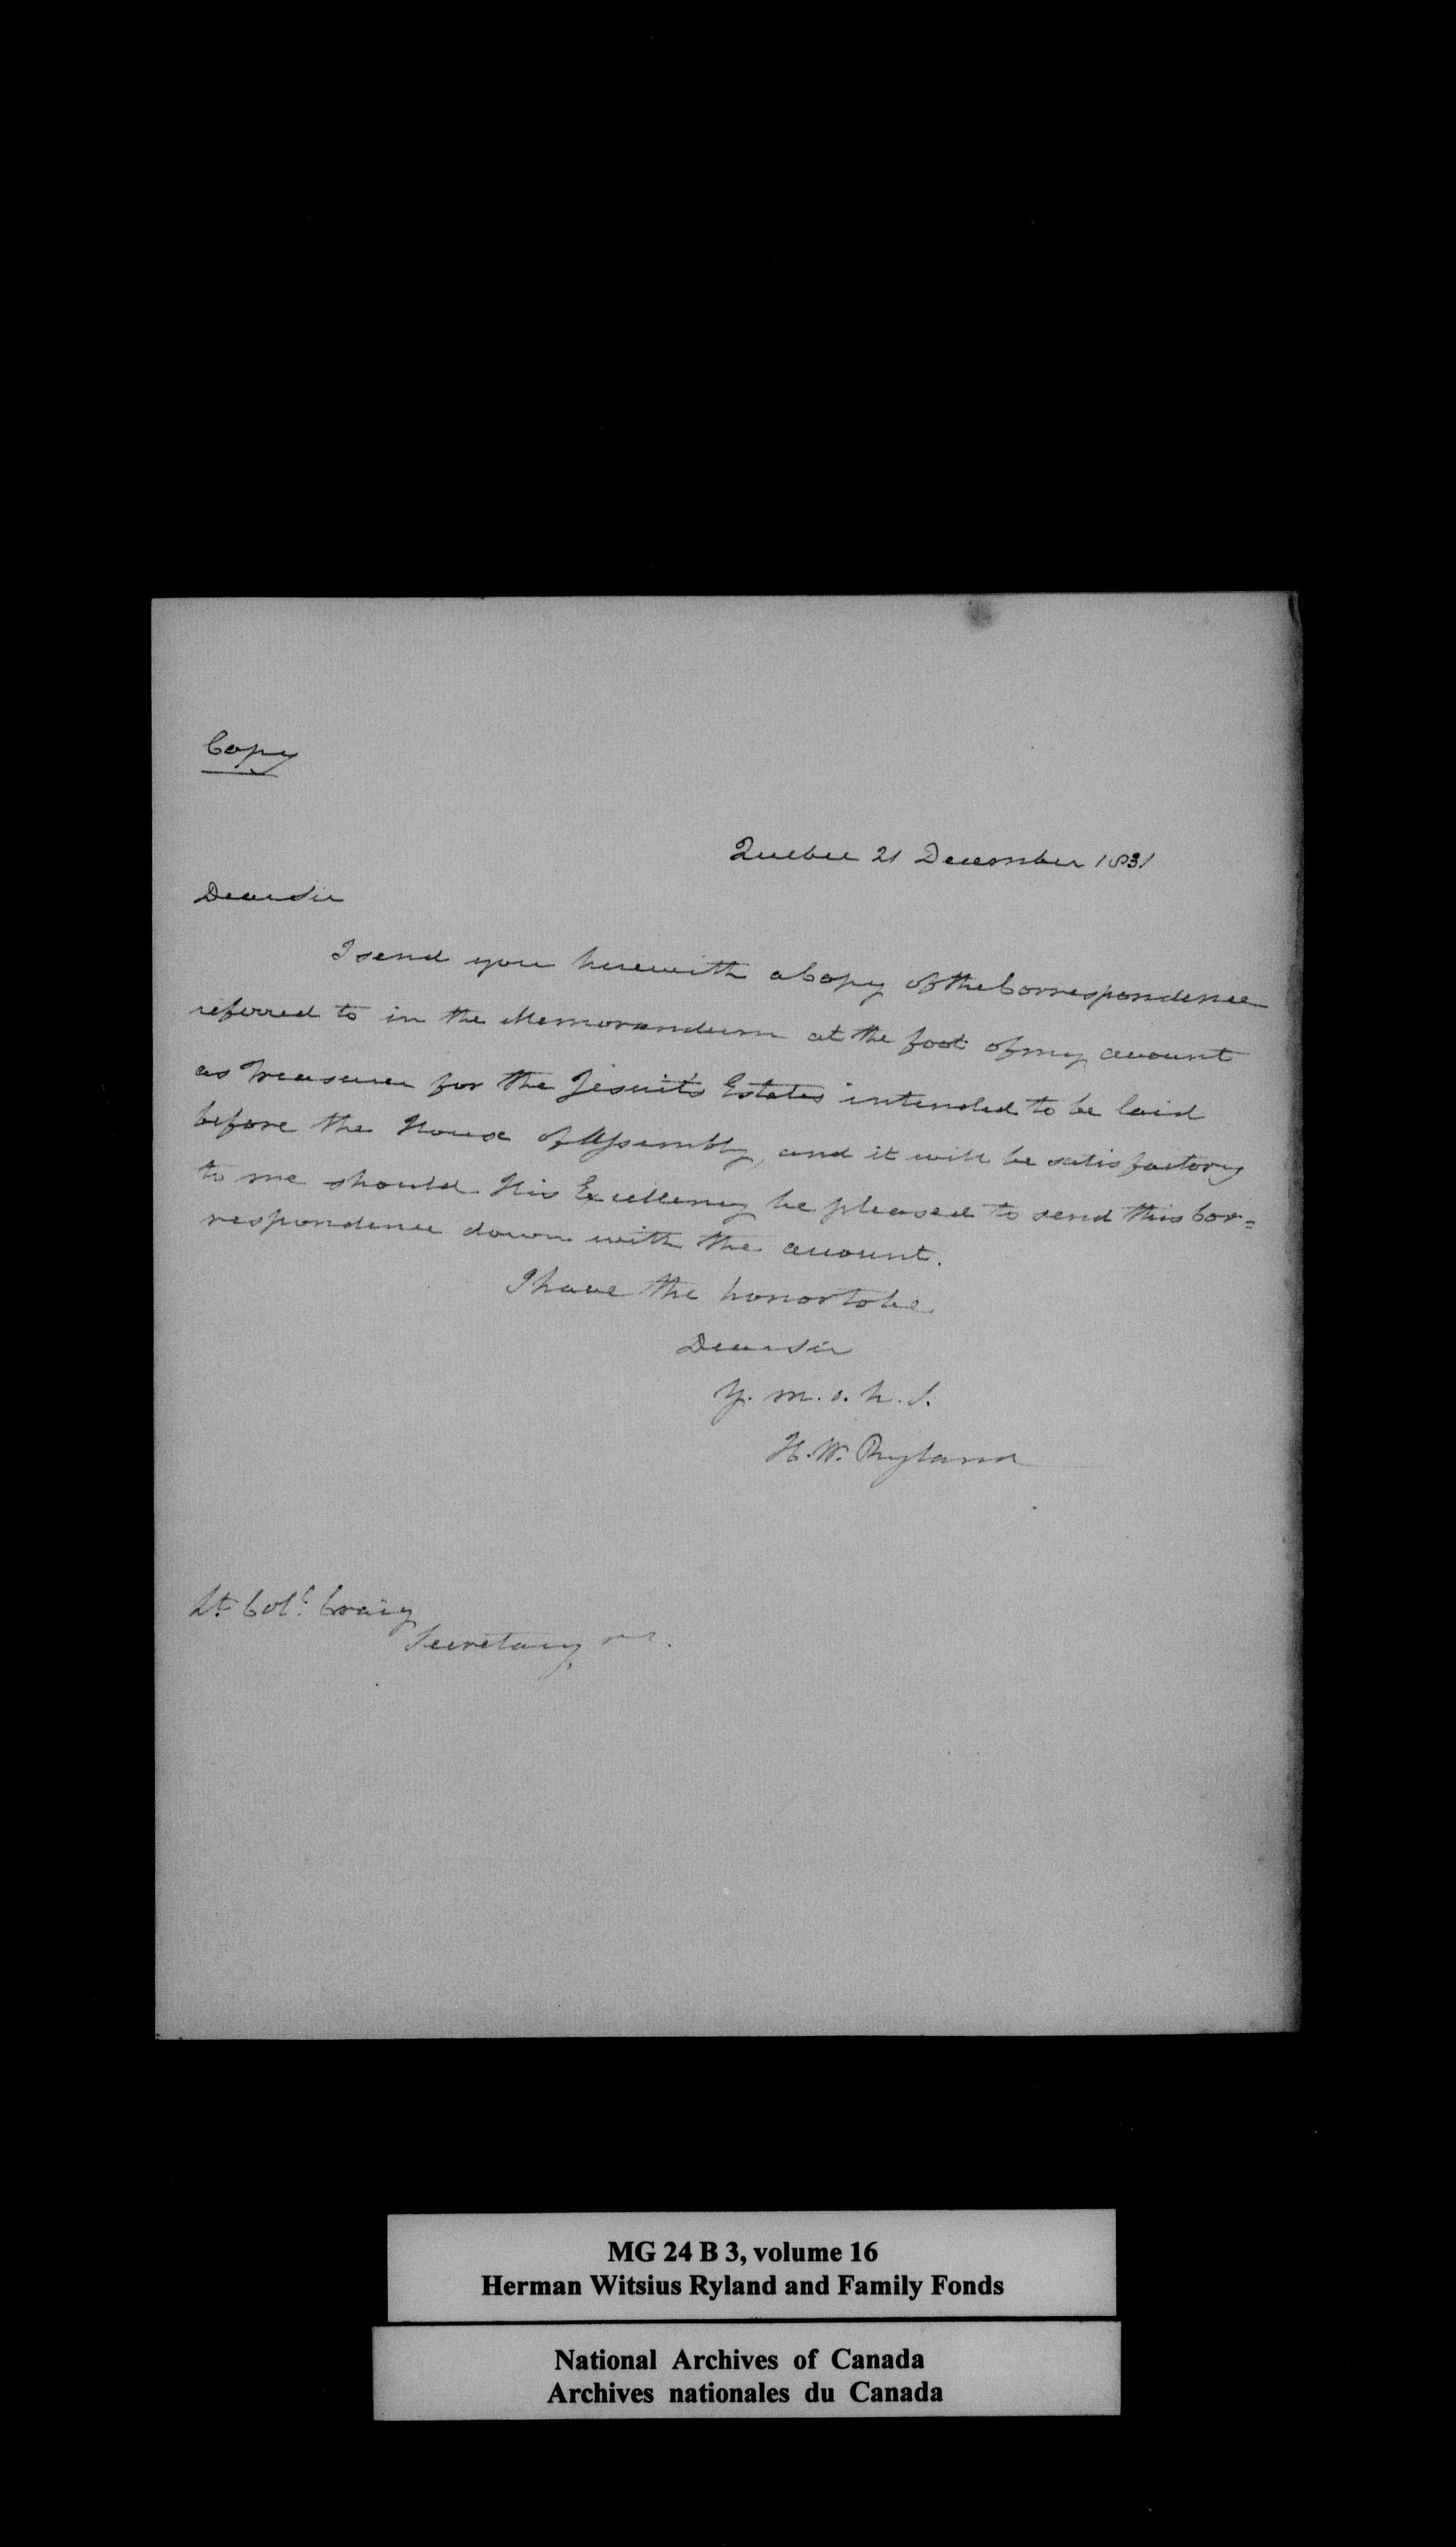 Copy
Quebec 21 December 1831
Dear Sir
I send you herewith a Copy of the Correspondence
referred to in the Memorandum at the foot of my account
as Treasurer for the Jesuit's Estates intended to be laid
before the House of Assembly, and it will be satisfactory
to me should His Excellency be pleased to send this Cor=
respondence down with the account.
I have the honor to be
Dear Sir
Y. m. o. h. S.
H. W. Ryland
Lt. Col. Craig
Secretary
MG 24 B 3, volume 16
Herman Witsius Ryland and Family Fonds
National Archives of Canada
Archives nationales du Canada